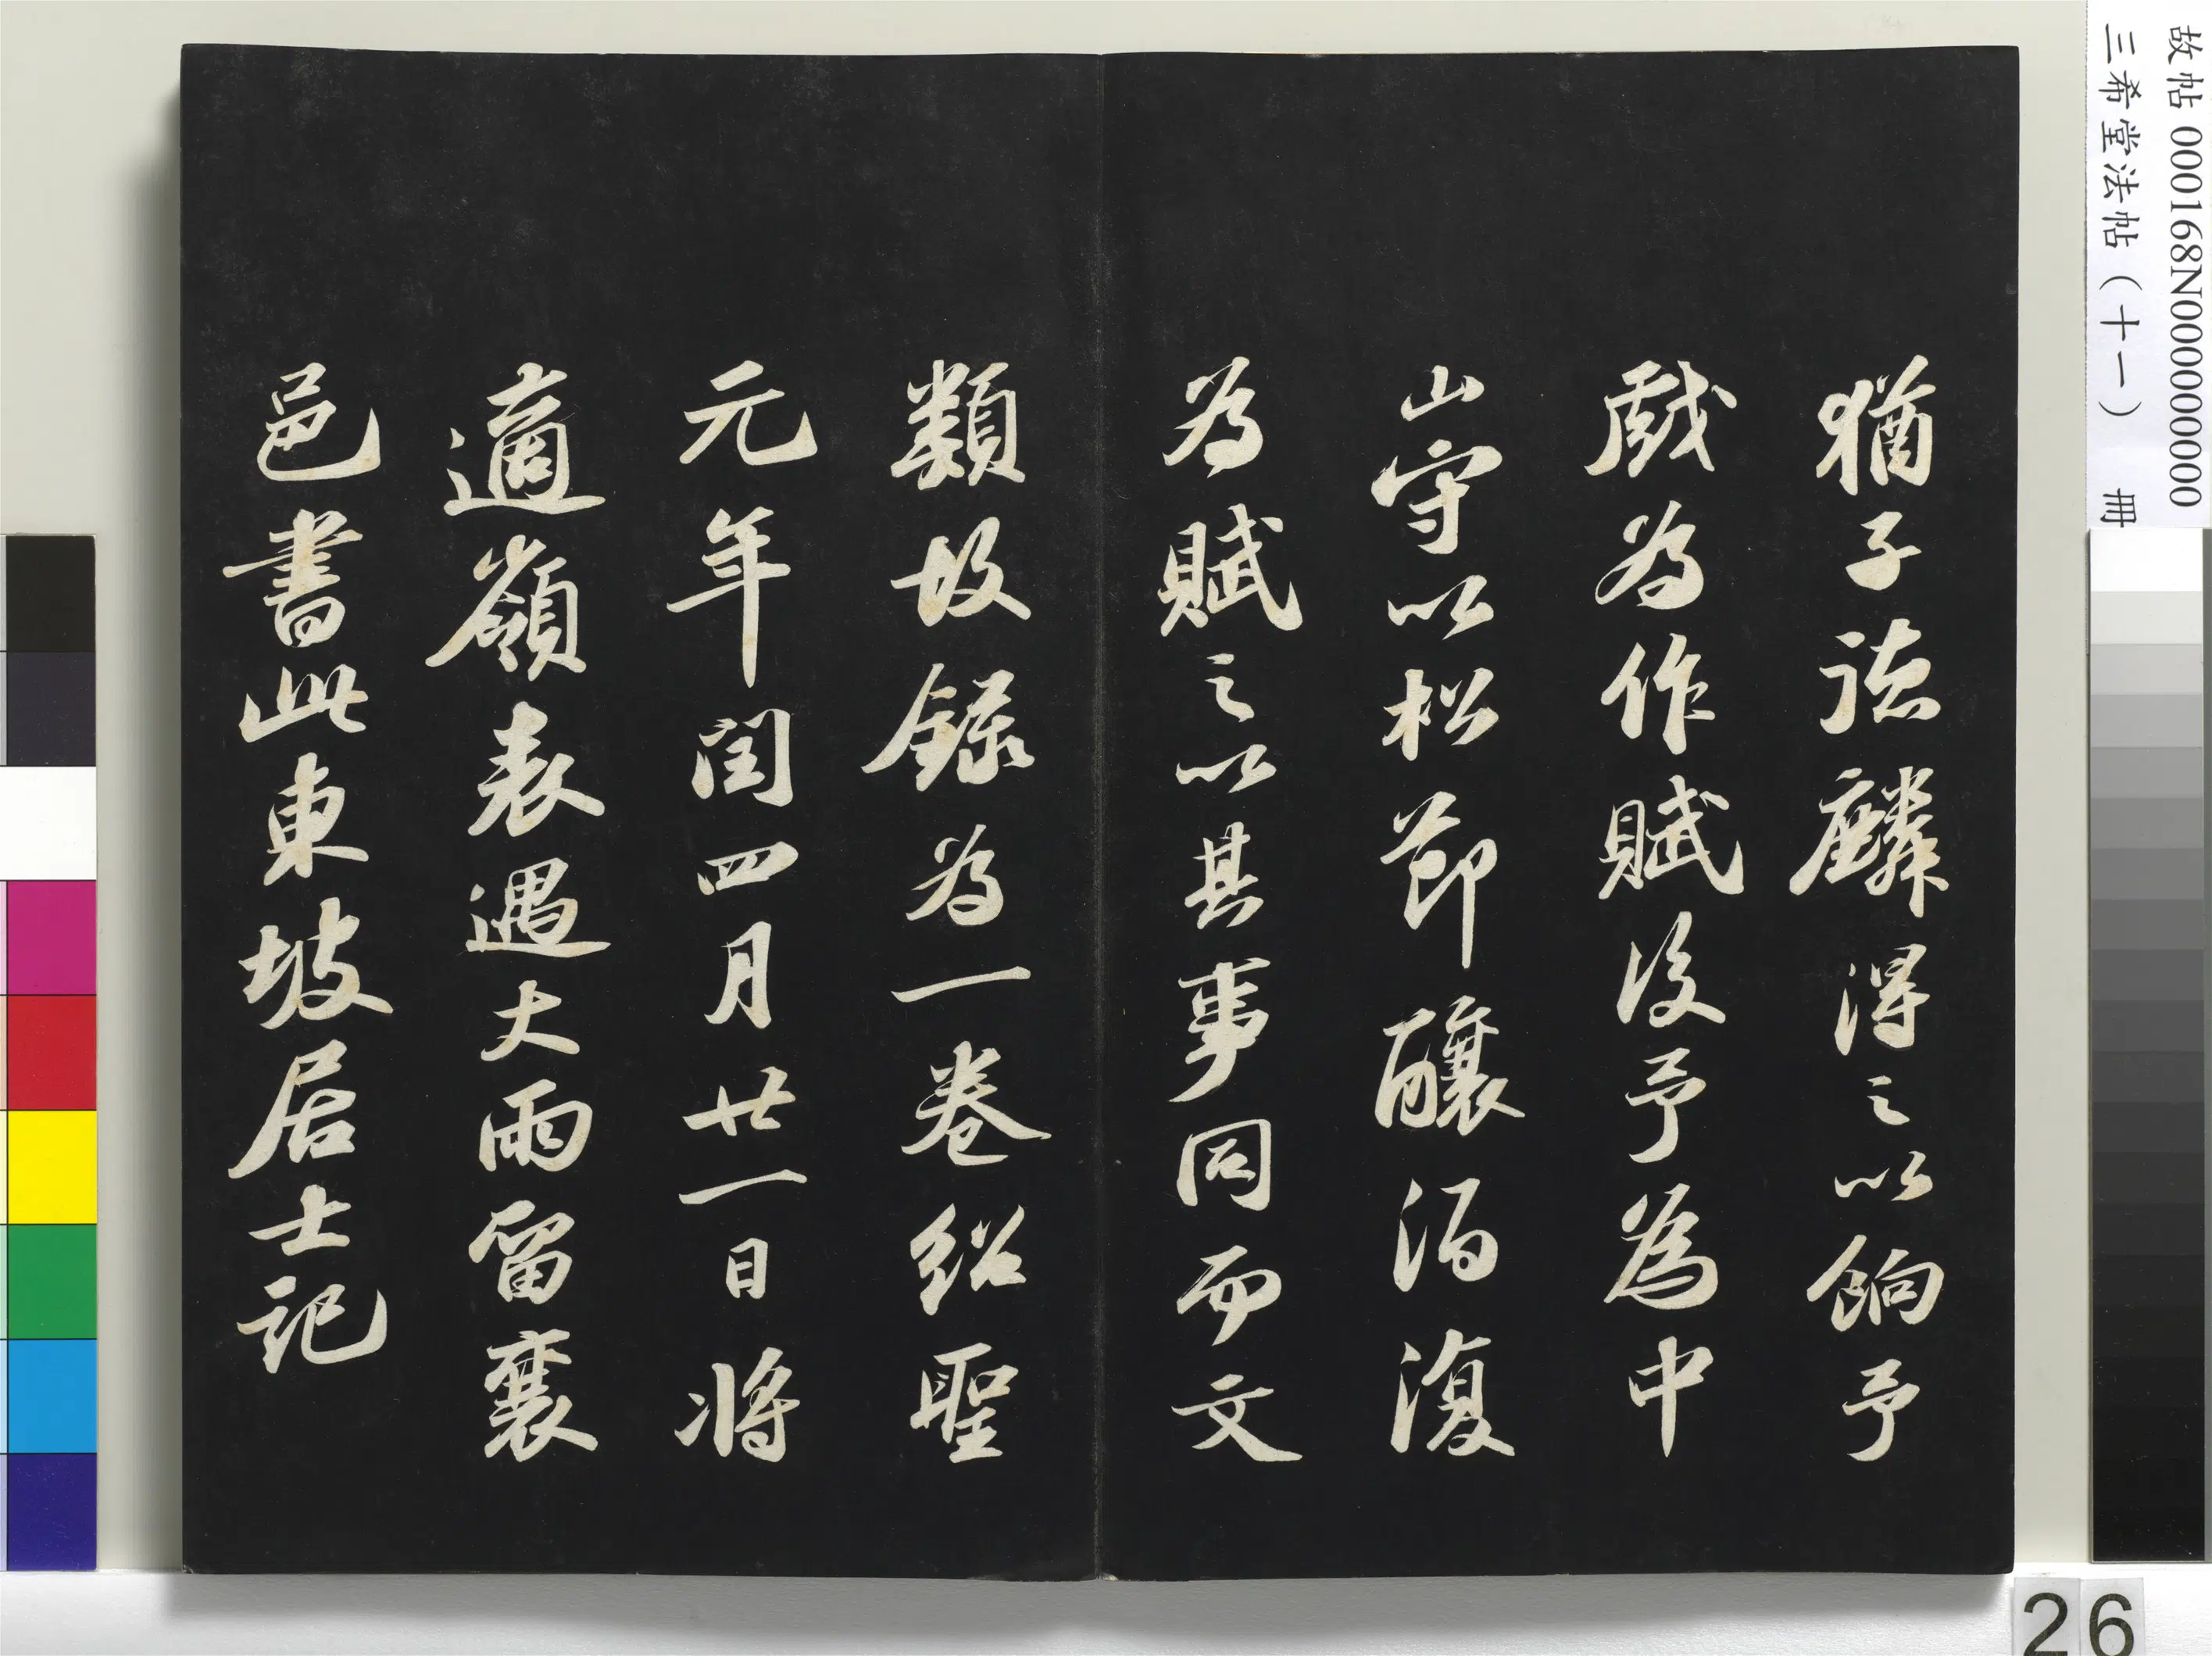 猶子德麟得之以餉予
戲為作賦後予為中
山守以松節釀酒復
為賦之以其事同而文
類故錄為一卷紹聖
元年閏四月廿一日將
適嶺表遇大雨留襄
邑書此東坡居士記
故帖 000168N000000000
三希堂法帖（十一） 冊
26